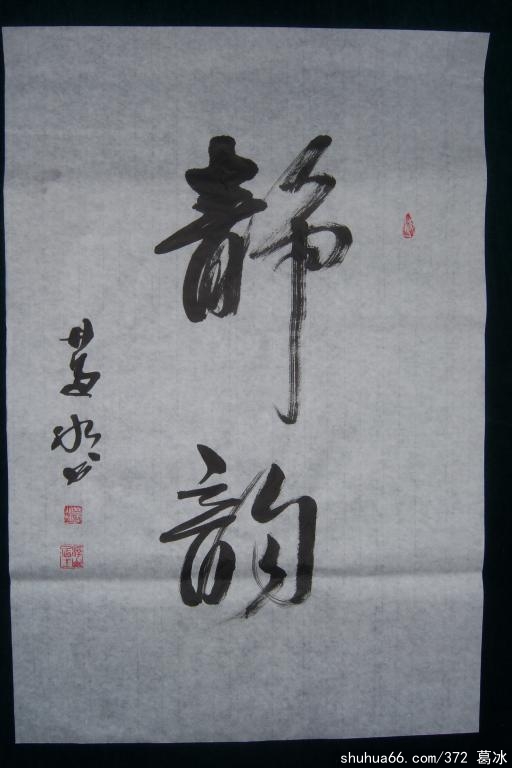 静韵
葛冰
shuhua66.com/372 葛冰